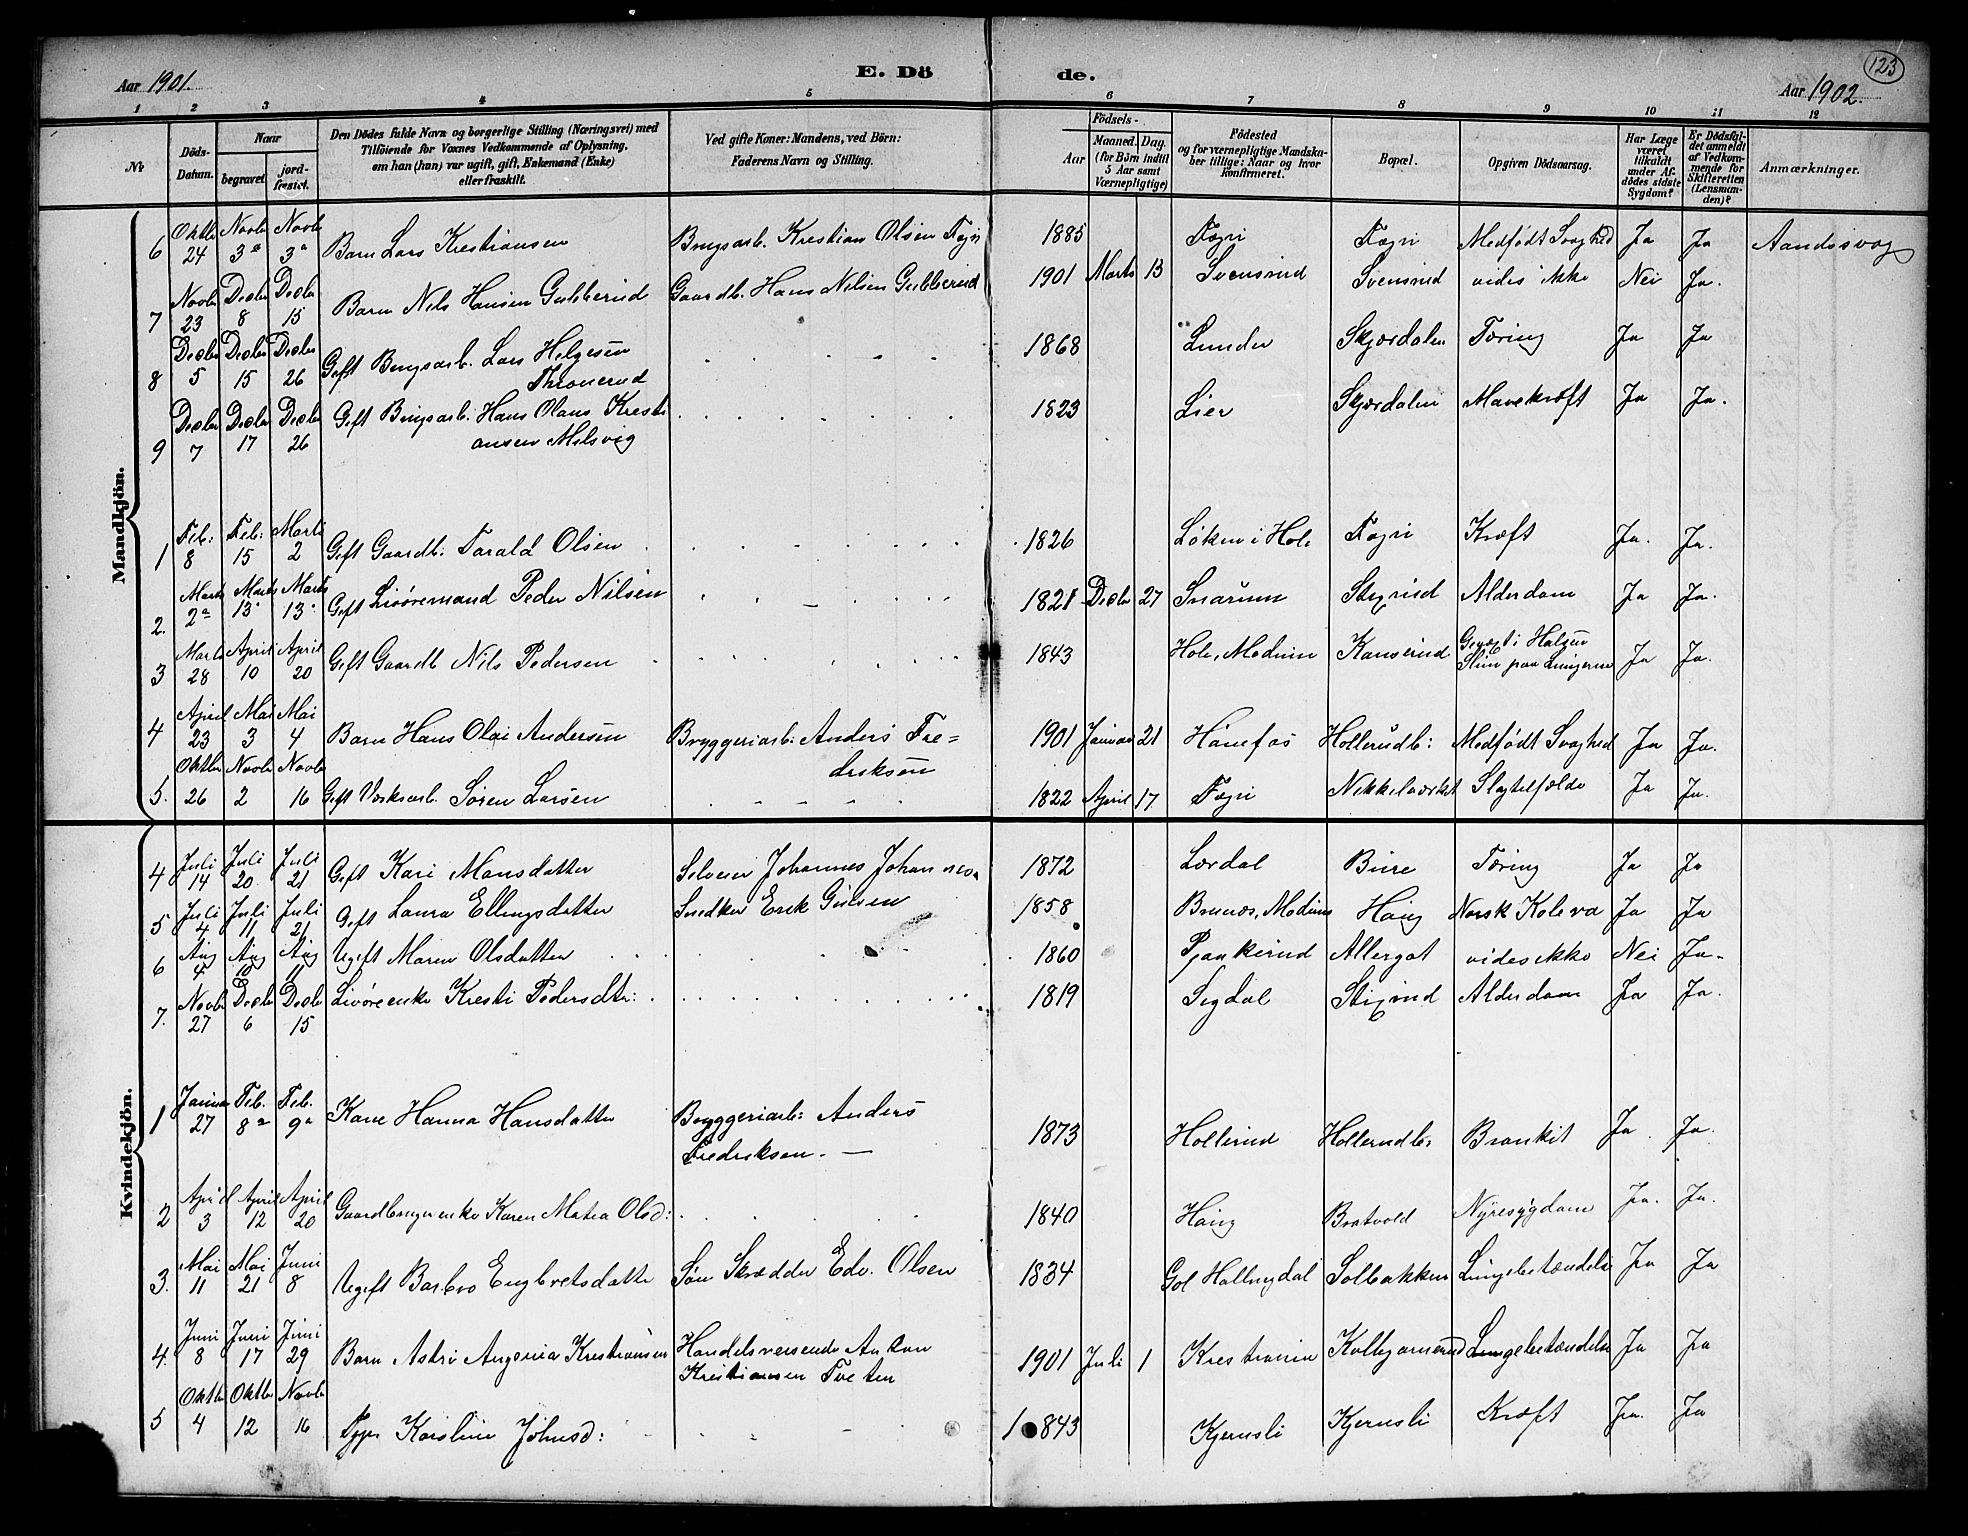 Aar 1901.
E. Dö de.
123
Aar 1902.
1 2 3 4 5 6 7 8 9 10 11 12
No
Döds-Datum.
Naar
begravet
jord-fæstet.
Den Dödes fulde Navn og borgerlige Stilling (Næringsvei) med
Tilföiende for Voxnes Vedkommende af Oplysning,
om han (hun) var ugift, gift, Enkemand (Enke)
eller fraskilt.
Ved gifte Koner: Mandens, ved Börn:
Faderens Navn og Stilling.
Födsels-
Aar
Maaned. Dag.
(for Börn indtil
5 Aar samt
Værnepligtige)
Födested
og for værnepligtige Mandska-
ber tillige: Naar og hvor
konfirmeret.
Bopæl.
Opgiven Dödsaarsag.
Har Læge
været
tilkaldt
under Af-
dödes sidste
Sygdom?
Er Dödsfal-
det anmeldt
af Vedkom-
mende for
Skifteretten
(Lensman-
den)?
Anmærkninger.
Mandkjön.
6 Oktbr 24 Novbr 3 Novbr 3 Barn Lars Kristiansen Brugsarb. Kristian Olsen Fagri 1885 Fagri Fagri Medfödt Svaghed Ja Ja Aandssvag
7 Novbr 23 Decbr 8 Decbr 15 Barn Nils Hansen Gubberud Gaardb. Hans Nilsen Gubberud 1901 Marts 13 Svensrud Svensrud vides ikke Nei Ja.
8 Decbr 5 Decbr 15 Decbr 26 Gift Brugsarb. Lars Helgesen
Thronerud 1868 Lunder Skjærdalen Tæring Ja Ja
9 Decbr 7 Decbr 17 Decbr 26 Gift Brugsarb. Hans Olaus Kristi
ansen Melsvig 1823 Lier Skjærdalen Mavekræft Ja Ja.
1 Feb: 8 Feb: 15 Marts 2 Gift Gaardb: Tarald Olsen 1826 Löken i Hole Fagri Kræft Ja. Ja.
2. Marts 2 Marts 13 Marts 13 Gift Livöremand Peder Nilsen 1821 Decbr 27 Snarum Stixrud Alderdom Ja Ja.
3 Marts 28 April 10 April 20 Gift Gaardb Nils Pedersen 1843 Hole, Modum Kanserud Gevæxt i Halsen
Slim paa Lungerne Ja Ja.
4 April 23 Mai 3 Mai 4 Barn Hans Olai Andersen Bryggeriarb: Anders Fre=
driksen 1901 Januar 21 Hönefos Hollerudb: Medfödt Svaghed Ja Ja.
5. Oktbr 26 Novbr 2 Novbr 16 Gift Værksarb. Sören Larsen 1822 April 17 Fagri Nikkelværket Slagtilfælde Ja Ja.
Kvindekjön.
4 Juli 14 Juli 20 Juli 21 Gift Kari Monsdatter Selveier Johannes Johannes. 1872 Lærdal Bure Tæring Ja Ja
5 Juli 4 Juli 11 Juli 21 Gift Laura Ellingsdatter Snedker Erik Gulsen 1858 Bunæs, Modum Haug Norsk Kolera Ja Ja
6 Aug 4 Aug 10 Aug 11 Ugift Maren Olsdatter 1860 Pjaakerud Allergot vides ikke Nei Ja
7. Novbr 27 Decbr 6 Decbr 15 Livöreenke Kristi Pedersdtr: 1819 Sigdal Stixrud Alderdom Ja Ja.
1 Januar 27 Feb. 8 Feb. 9 Kone Hanna Hansdatter Bryggeriarb: Anders
Fredriksen. 1873 Hollerud Hollerudb: Bronkit Ja. Ja.
2 April 3 April 12 April 20 Gaardbrugerenke Karen Matea Olsd: 1840 Haug Bratvold Nyresygdom Ja. Ja.
3. Mai 11 Mai 21 Juni 8 Ugift Barbro Engbretsdatter Sön Skrædder Edv. Olsen 1834 Gol Hallingdal Solbakken Lungebetændelse Ja Ja
4. Juni 8 Juni 17 Juni 29 Barn Astri Angenia Kristiansen Handelsreisende Anton
Kristiansen Tveten 1901 Juli 1 Kristiania Kolbjornerud Lungebetændelse Ja Ja
5 Oktbr 4 Oktbr 12 Novbr 16 Karoline Johnsd: 1843 Kjernsli Kjernsli Kræft Ja. Ja